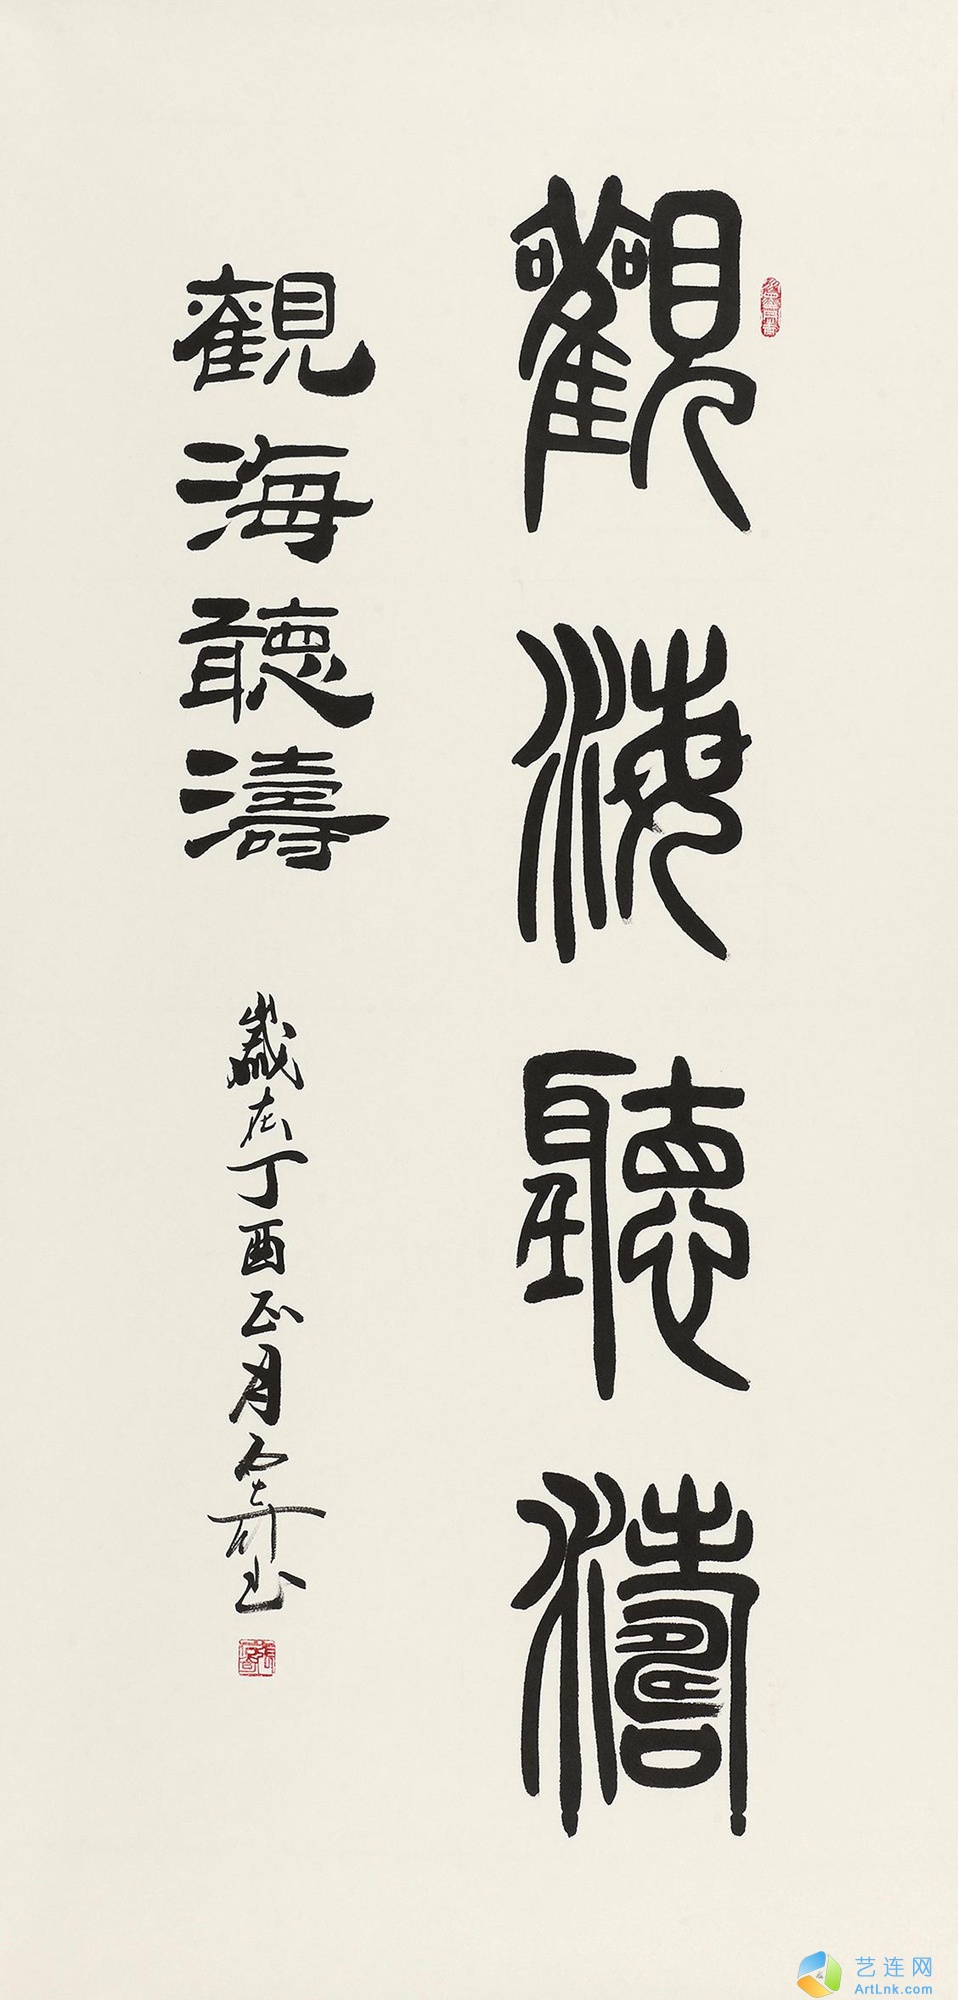 觀海聽濤
觀海聽濤
歲在丁酉正月
艺连网
ArtLnk.com